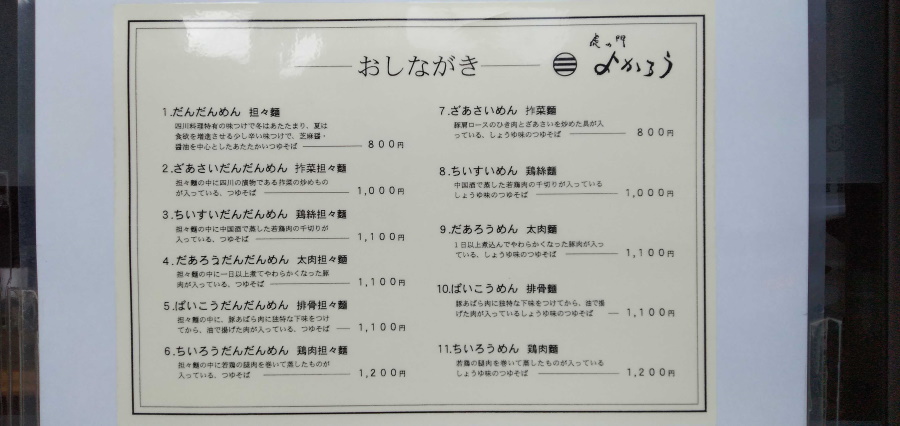 おしながき
虎の門
よかろう
1.だんだんめん 担々麺
四川料理特有の味つけで冬はあたたまり、夏は
食欲を増進させる少し辛い味つけで、芝麻醤・
醤油を中心としたあたたかいつゆそば 800円
2.ざあさいだんだんめん 搾菜担々麺
担々麺の中に四川の漬物である搾菜の炒めもの
が入っている、つゆそば 1,000円
3.ちいすいだんだんめん 鶏絲担々麺
担々麺の中に中国酒で蒸した若鶏肉の千切りが
入っている、つゆそば 1,100円
4.だあろうだんだんめん 太肉担々麺
担々麺の中に一日以上煮てやわらかくなった豚
肉が入っている、つゆそば 1,100円
5.ぱいこうだんだんめん 排骨担々麺
担々麺の中に、豚あばら肉に独特な下味をつけ
てから、油で揚げた肉が入っている、つゆそば 1,100円
6.ちいろうだんだんめん 鶏肉担々麺
担々麺の中に若鶏の腿肉を巻いて蒸したものが
入っている、つゆそば 1,200円
7.ざあさいめん 搾菜麺
豚肩ロースのひき肉とざあさいを炒めた具が入
っている、しょうゆ味のつゆそば 800円
8.ちいすいめん 鶏絲麺
中国酒で蒸した若鶏肉の千切りが入っている
しょうゆ味のつゆそば 1,000円
9.だあろうめん 太肉麺
1日以上煮込んでやわらかくなった豚肉が入っ
ている、しょうゆ味のつゆそば 1,100円
10.ぱいこうめん 排骨麺
豚あばら肉に独特な下味をつけてから、油で揚
げた肉が入っているしょうゆ味のつゆそば 1,100円
11.ちいろうめん 鶏肉麺
若鶏の腿肉を巻いて蒸したものが入っている
しょうゆ味のつゆそば 1,200円